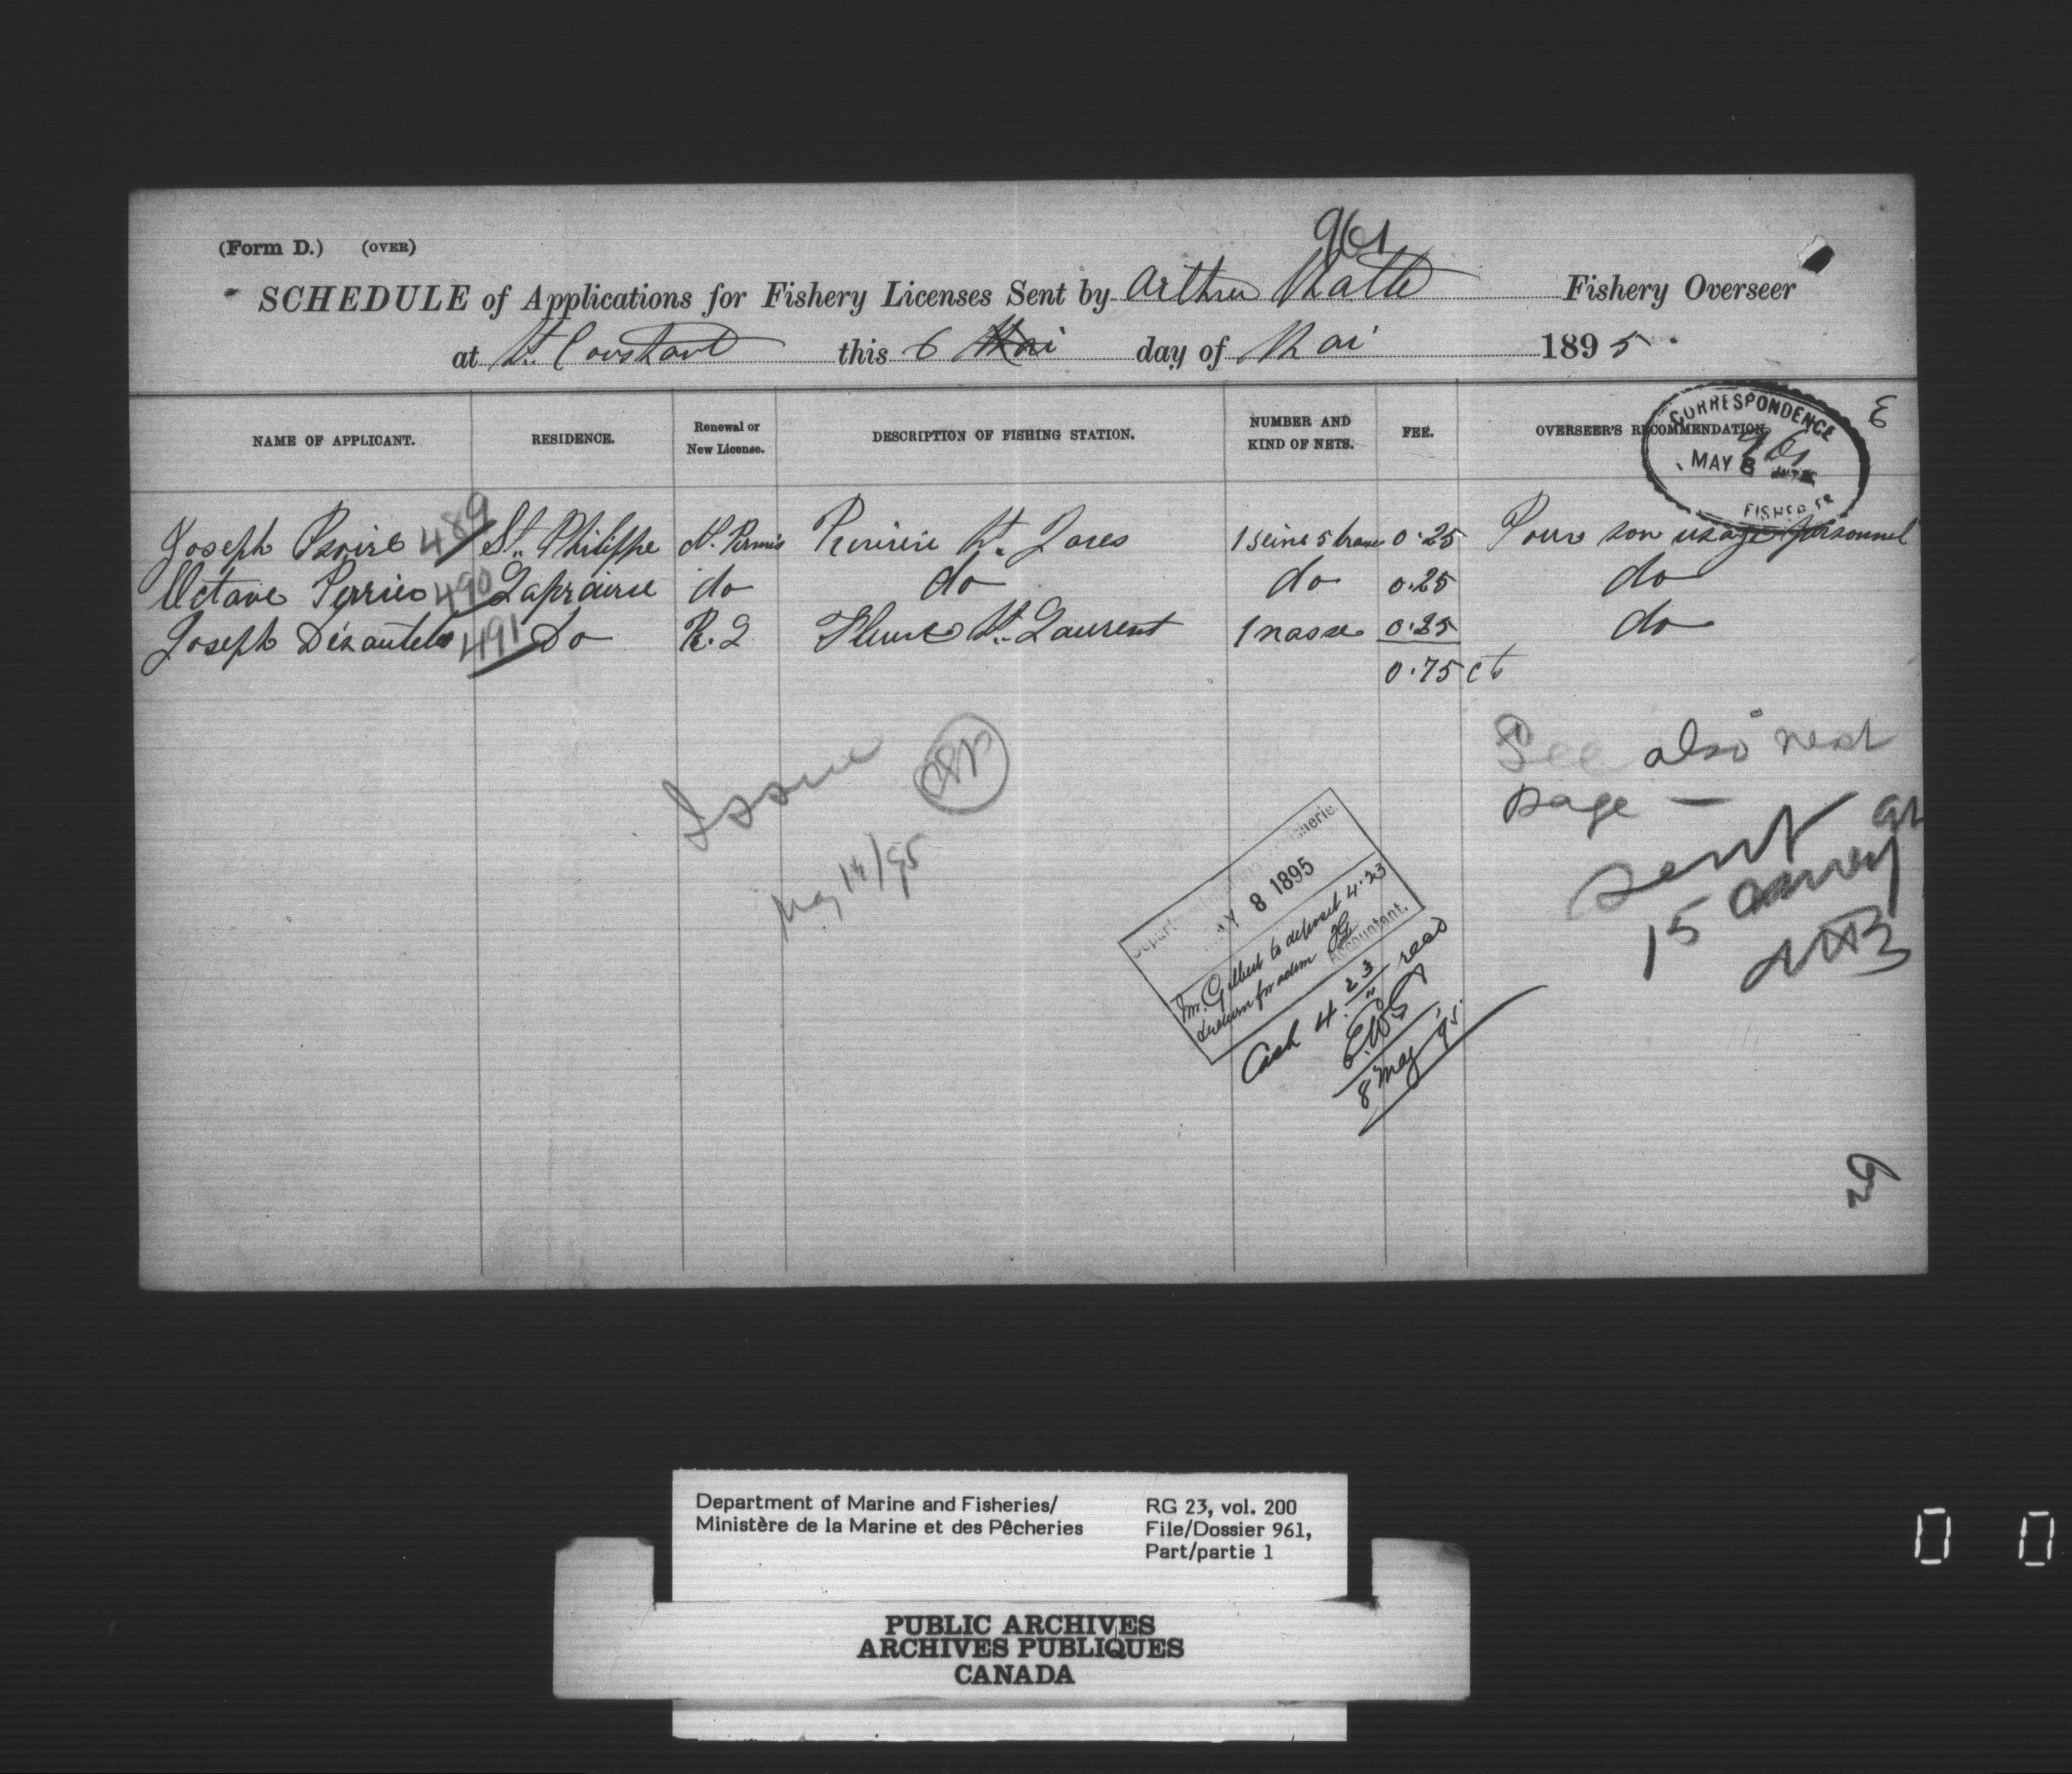 961
(Form D.) (OVER)
SCHEDULE of Applications for Fishery Licenses Sent by Arthur Fishery Overseer
at St. Constant this 6 Mai day of Mai 1895.
NAME OF APPLICANT. RESIDENCE. Renewal or New License. DESCRIPTION OF FISHING STATION. NUMBER AND KIND OF NETS. FEE. OVERSEER'S RECOMMENDATION
CORRESPONDENCE
961
MAY 8
Joseph 489 St. Philippe N. Permis St. 1 seine 5 0.25 Pour son usage personnel
Octave Perrier 490 Laprairie do do do 0.25 do
Joseph Désautels 491 Do R. L Fleuve St. Laurent 1 nasse 0.25 do
0.75 cts
See also next
page —
Issue
May 14/95
sent
15
MAY 8 1895
Mr. Gilbert to deposit 4.23
& return for
Accountant.
Cash 4 23 recd
8 May '95.
Department of Marine and Fisheries/
Ministère de la Marine et des Pêcheries
RG 23, vol. 200
File/Dossier 961,
Part/partie 1
PUBLIC ARCHIVES
ARCHIVES PUBLIQUES
CANADA
0 0